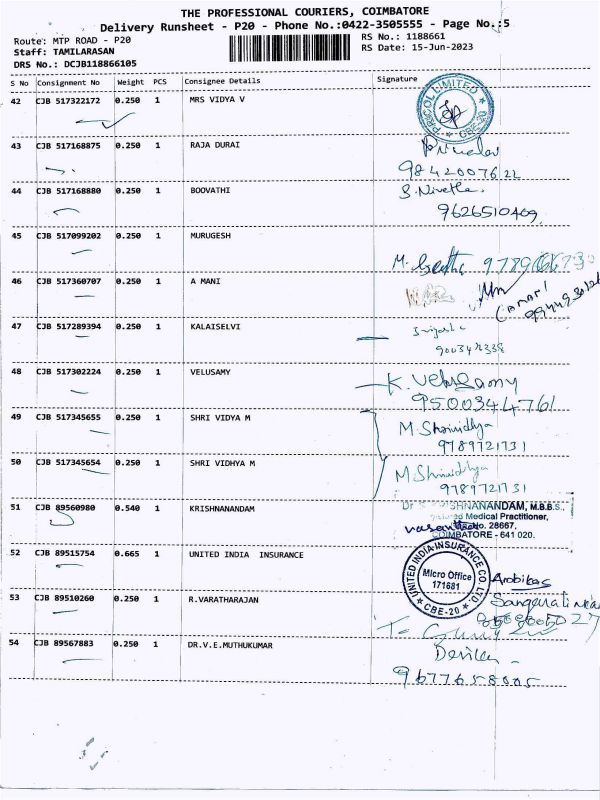 THE PROFESSIONAL COURIERS, COIMBATORE
Delivery Runsheet - P20 - Phone No.:0422-3505555 - Page No.:5
Route: MTP ROAD - P20
RS No.: 1188661
Staff: TAMILARASAN
RS Date: 15-Jun-2023
DRS No.: DCJB118866105
S No Consignment No Weight PCS Consignee Details Signature
42 CJB 517322172 0.250 1 MRS VIDYA V
PRICOL LIMITED CBE-20
43 CJB 517168875 0.250 1 RAJA DURAI
9842007622
44 CJB 517168880 0.250 1 BOOVATHI
S. Nivetha.
9626510409
45 CJB 517099202 0.250 1 MURUGESH
M. Geetha
46 CJB 517360707 0.250 1 A MANI
47 CJB 517289394 0.250 1 KALAISELVI
48 CJB 517302224 0.250 1 VELUSAMY
K. Velusamy
9500344761
49 CJB 517345655 0.250 1 SHRI VIDYA M
M. Shrividhya
9789721731
50 CJB 517345654 0.250 1 SHRI VIDHYA M
M Shrividhya
9789721731
51 CJB 89560980 0.540 1 KRISHNANANDAM
SHNANANDAM, M.B.B.S.,
Medical Practitioner,
vasantha No. 28667,
COIMBATORE - 641 020.
52 CJB 89515754 0.665 1 UNITED INDIA INSURANCE
UNITED INDIA INSURANCE CO. LTD.
Micro Office
171681
CBE-20
53 CJB 89510260 0.250 1 R.VARATHARAJAN
54 CJB 89567883 0.250 1 DR.V.E.MUTHUKUMAR
9677658005